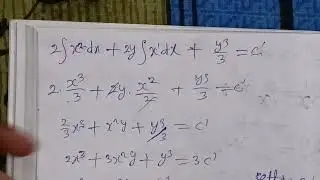 2∫x²dx + 2y∫x'dx + y³/3 = c'
2·x³/3 + 2y·x²/2 + y³/3 = c'
2/3x³ + x²y + y³/3 = c'
2x³ + 3x²y + y³ = 3c'